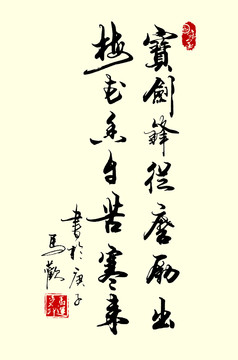 寶劍鋒從磨礪出
梅花香自苦寒來
書於庚子
馬歡